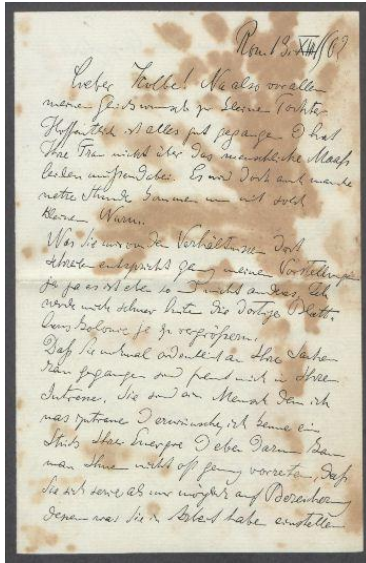 Rom 13. XII/02
Lieber Kolbe! Na also vor allem
meinen Glückwunsch zu Kleine Tochter
Hoffentlich ist alles gut gegangen & hat
Ihre Frau nicht über das menschliche Maaß
leiden müssen dabei. Es wird doch auch manche
nette Stunde kommen nun mit solch
kleinem Wurm.
Was Sie mir von den Verhältnissen dort
schreiben entspricht ganz meinen Vorstellungen
ja ja es ist eben so & nicht anders. Ich
werde mich schwer hüten die dortige
Colonie je zu vergrößern.
Daß Sie nochmal ordentlich an Ihre Sachen
ran gegangen sind freut mich in Ihrem
Interesse. Sie sind ein Mensch dem ich
was zutraue & erwünsche, ich kenne ein
Stück Ihrer Energie & eben darum kann
man Ihnen nicht oft genug vorreden, daß
Sie sich soviel als nur möglich auf
denen was Sie in Arbeit haben einstellen